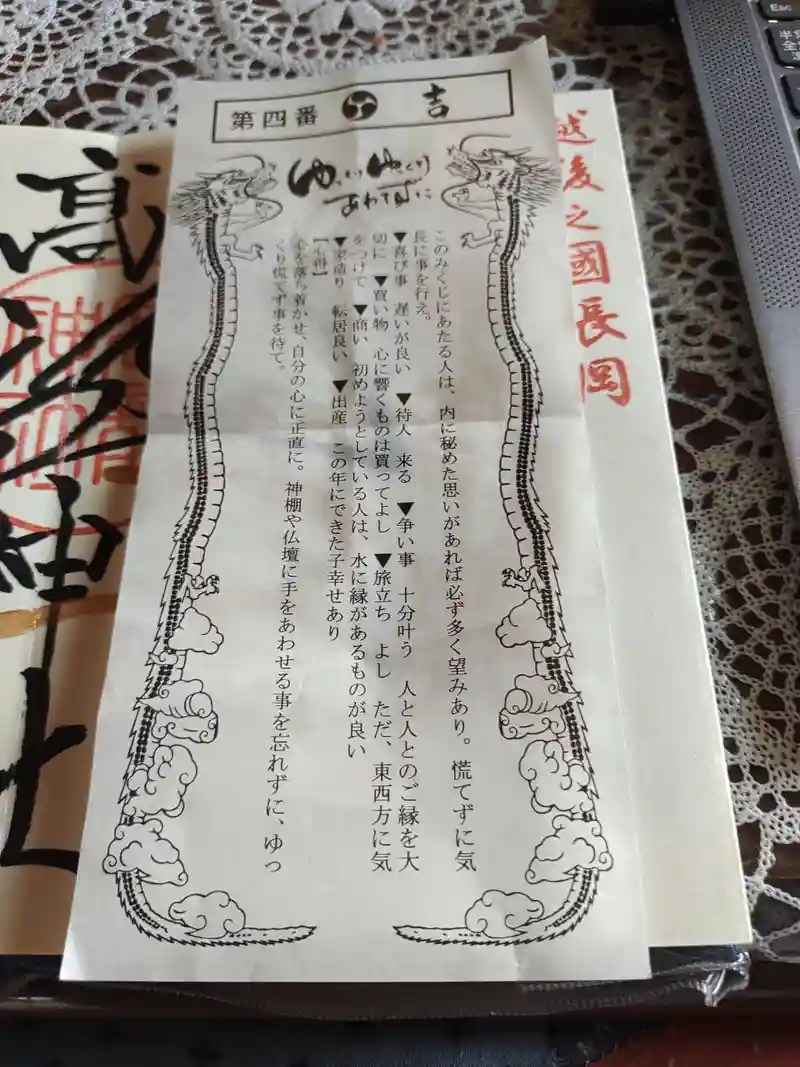 第四番 吉
ゆっくりゆっくり
あわてずに
このみくじにあたる人は、内に秘めた思いがあれば必ず多く望みあり。慌てずに気
長に事を行え。
▼喜び事 遅いが良い ▼待人 来る ▼争い事 十分叶う 人と人とのご縁を大
切に ▼買い物 心に響くものは買ってよし ▼旅立ち よし ただ、東西方に気
をつけて ▼商い 初めようとしている人は、水に縁があるものが良い
▼家造り 転居良い ▼出産 この年にできた子幸せあり
心を落ち着かせ、自分の心に正直に。神棚や仏壇に手をあわせる事を忘れずに、ゆっ
くり慌てず事を待て。
越後之國長岡
高
神社
半/全
Esc